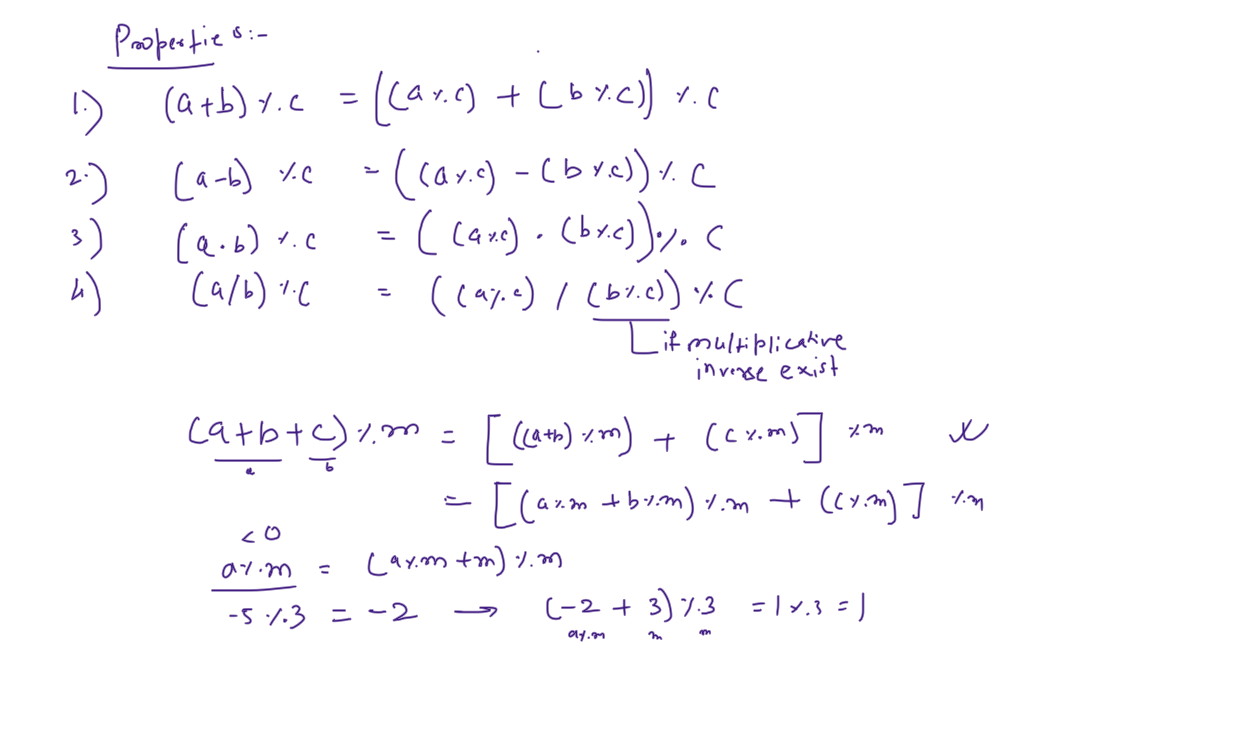 Properties:-
1.) (a+b) %. C = [(a %. c) + (b %. c)] %. C
2.) (a-b) %. C = ((a %. c) - (b %. c)) %. C
3) (a.b) %. C = ((a %. c) . (b %. c)) %. C
4) (a/b) %. C = ((a %. c) / (b %. c)) %. C
if multiplicative
inverse exist
(a+b+c) %. m = [((a+b) %. m) + (c %. m)] %. m
a b
= [(a %. m + b %. m) %. m + ((c %. m)] %. m
< 0
a %. m = (a %. m + m) %. m
-5 %. 3 = -2 → (-2 + 3) %. 3 = 1 %. 3 = 1
a %. m m m